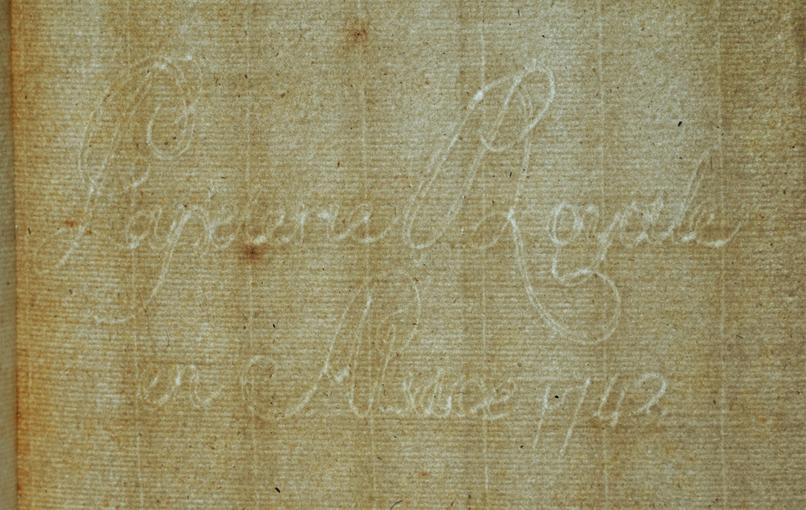 Papeterie Royale
en Alsace 1742